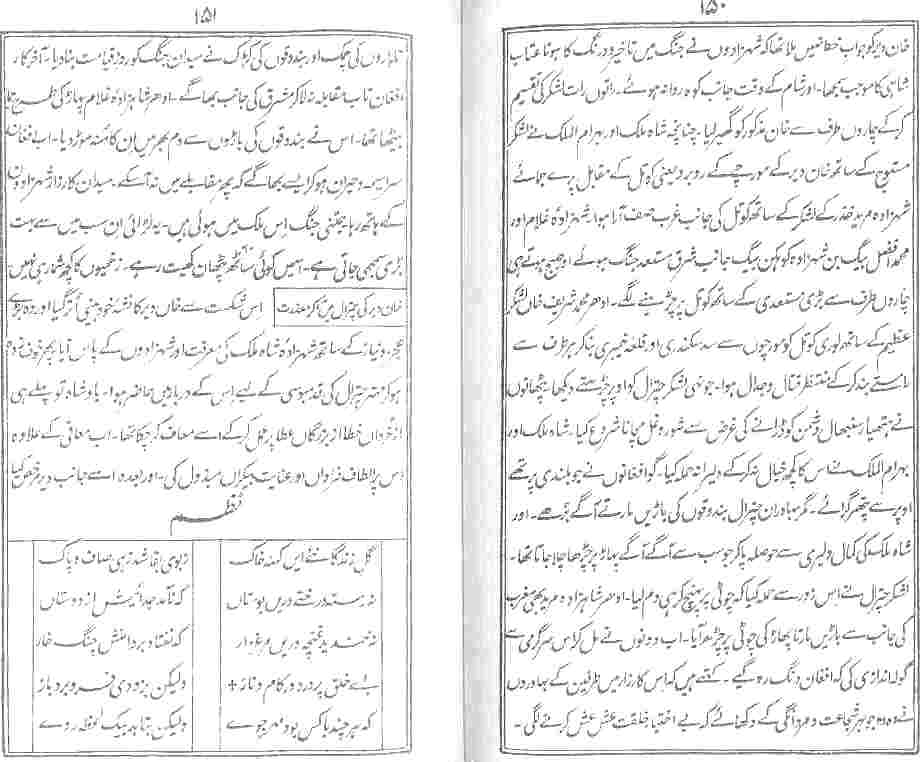 ۱۵۰
خان دیر کو جواب خط نہیں ملا تھا کہ شہزادوں نے جنگ میں تاخیر و درنگ کا ہونا عتاب
شاہی کا موجب سمجھا۔ اور شام کے وقت جانب کوہ روانہ ہوئے۔ راتوں رات لشکر کی تقسیم
کر کے چاروں طرف سے خان مذکور کو گھیر لیا۔ چنانچہ شاہ ملک اور بہرام الملک نے لشکر
مستوج کے ساتھ خان دیر کے مورچے کے روبرو یعنی کوتل کے مقابل پرے جمائے
شہزادہ مرید خضر کے لشکر کے ساتھ کوتل کی جانب غرب صف آرا ہوا شہزادہ غلام اور
محمد افضل بیگ بن شہزادہ کوہکن بیگ جانب شرق مستعد جنگ ہوئے اور صبح ہوتے ہی
چاروں طرف سے بڑی مستعدی کے ساتھ کوتل پر چڑھنے لگے۔ ادھر محمد شریف خاں لشکر
عظیم کے ساتھ لوری کوتل کو مورچوں سے سد سکندری اور قلعہ خیبری بنا کر ہر طرف سے
راستے بند کر کے منتظر قتال و جدال ہوا۔ جونہی لشکر چترال کو اوپر چڑھتے دیکھا۔ پٹھانوں
نے ہتھیار سنبھال دشمن کو ڈرانے کی غرض سے شور و غل مچانا شروع کیا۔ شاہ ملک اور
بہرام الملک نے اس کا کچھ خیال نہ کر کے دلیرانہ حملہ کیا۔ گو افغانوں نے جو بلندی پر تھے
اوپر سے پتھر گرائے۔ مگر بہادران چترال بندوقوں کی باڑیں مارتے آگے بڑھے۔ اور
شاہ ملک کی کمال دلیری سے حوصلہ پا کر جو سب سے آگے آگے پہاڑ پر چڑھا چلا جاتا تھا۔
لشکر چترال نے اس زور سے حملہ کیا کہ چوٹی پر پہنچ کر ہی دم لیا۔ ادھر شاہزادہ مرید بھی غرب
کی جانب سے باڑیں مارتا پہاڑ کی چوٹی پر چڑھ آیا۔ اب دونوں نے مل کر اس سرگرمی سے
گولہ اندازی کی کہ افغان دنگ رہ گئے۔ کہتے ہیں کہ اس کارزار میں طرفین کے بہادروں
نے وہ وہ جوہر شجاعت و مردانگی کے دکھائے کہ بے اختیار خلقت عش عش کرنے لگی۔
۱۵۱
تلواروں کی چمک اور بندوقوں کی کڑک نے میدان جنگ کو روز قیامت بنا دیا۔ آخر کار
افغان تاب مقابلہ نہ لا کر مشرق کی جانب بھاگے۔ ادھر شاہزادہ غلام پہاڑ کی طرح
بیٹھا تھا۔ اس نے بندوقوں کی باڑوں سے دم بھر میں ان کا منہ موڑ دیا۔ اب افغان
سراسیمہ و حیران ہو کر ایسے بھاگے کہ پھر مقابلے میں نہ آ سکے۔ میدان کارزار شہزادوں
کے ہاتھ رہا۔ جتنی جنگ اس ملک میں ہوئی ہیں۔ یہ لڑائی ان سب میں سے بہت
بڑی سمجھی جاتی ہے۔ اسمیں کوئی ساٹھ پٹھان کھیت رہے۔ زخمیوں کا کچھ شمار ہی نہیں
خان دیر کی چترال میں آکر معذرت
اس شکست سے خاں دیر کا نشہ خود بینی اُتر گیا اور وہ بڑے
عجز و نیاز کے ساتھ شہزادہ شاہ ملک کی معرفت اور شہزادوں کے پاس آیا پھر خود
ہو کر مہتر چترال کی قدمبوسی کے لیے اس کے دربار میں حاضر ہوا۔ بادشاہ تو پہلے ہی
از خُرداں خطا از بزرگاں عطا پر عمل کر کے اسے معاف کر چکا تھا۔ اب معافی کے علاوہ
اس پر الطاف فراواں اور عنایت بیکراں مبذول کی۔ اور بعدہ اسے جانب دیر رخصت کیا
نظم
گل زندگانیے ایں کہنہ خاک ز بوی بقا شد زہی صاف و پاک
نہ بیند درختے دریں بوستاں کہ نآمد جدائیش از دوستاں
نہ خندید غنچہ دریں مرغزار کہ نفتاد بر دامنش چنگ خار
بسے خلق پرورد در کام و ناز + ولیکن بزودی فرو برد باز
کہ ہر چند با کس بود مہر جوے ولیکن بتابد بیک لحظہ روے